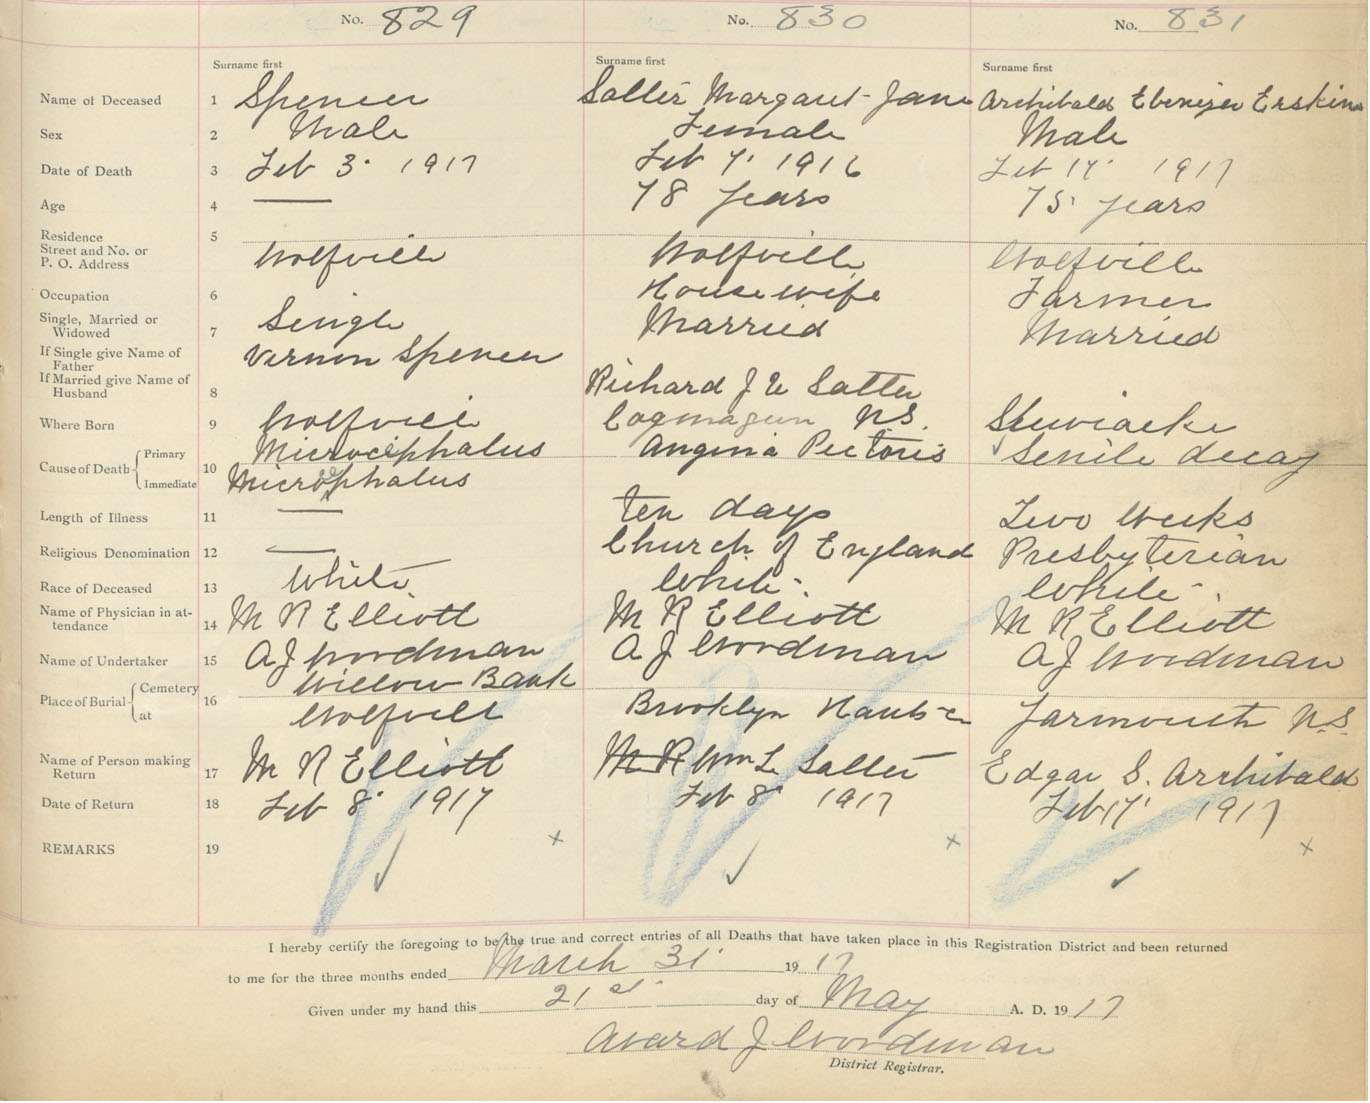 No. 829 No. 830 No. 831
Surname first Surname first Surname first
Name of Deceased 1 Spencer Salter Margaret Jane Archibald Ebenezer Erskine
Sex 2 Male Female Male
Date of Death 3 Feb 3 1917 Feb 7 1916 Feb 17 1917
Age 4 — 78 years 75 years
Residence
Street and No. or
P. O. Address 5 Wolfville Wolfville Wolfville
Occupation 6 Housewife Farmer
Single, Married or
Widowed 7 Single Married Married
If Single give Name of
Father Vernon Spencer
If Married give Name of
Husband 8 Richard J Salter
Where Born 9 Wolfville Cogmagun N.S. Stewiacke
Cause of Death Primary 10 Microcephalus Angina Pectoris Senile decay
Immediate Microcephalus
Length of Illness 11 — ten days Two Weeks
Religious Denomination 12 — Church of England Presbyterian
Race of Deceased 13 White White White
Name of Physician in at-
tendance 14 M R Elliott M R Elliott M R Elliott
Name of Undertaker 15 A J Woodman A J Woodman A J Woodman
Place of Burial Cemetery 16 Willow Bank
at Wolfville Brooklyn Hants Co Yarmouth N.S.
Name of Person making
Return 17 M R Elliott M R Wm L Salter Edgar S. Archibald
Date of Return 18 Feb 8 1917 Feb 8 1917 Feb 17 1917
REMARKS 19 x x x
I hereby certify the foregoing to be the true and correct entries of all Deaths that have taken place in this Registration District and been returned
to me for the three months ended March 31 1917
Given under my hand this 21st day of May A. D. 1917
Avard J Woodman
District Registrar.